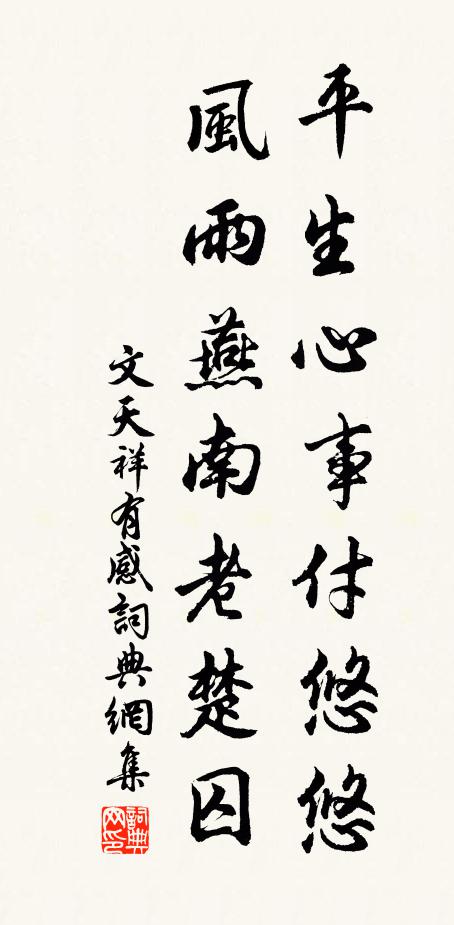 平生心事付悠悠
風雨燕南老楚囚
文天祥有感詞典網集
詞典
网印